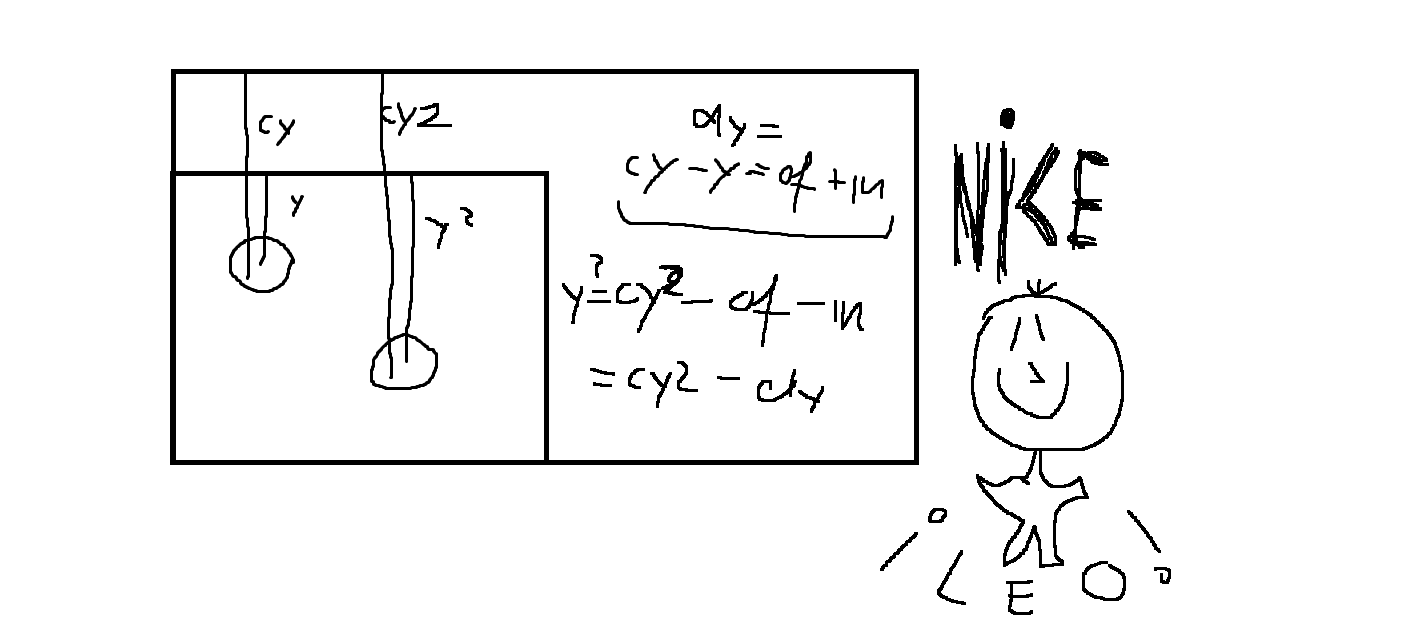 cy
cy2
y
y2
dy =
cy - y = of + in
y2 = cy2 - of - in
= cy2 - dy
NiKE
L E O